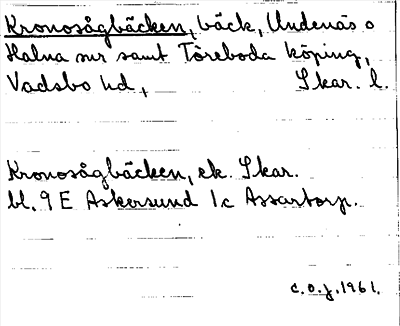 Kronosågbäcken, bäck, Undenäs o
Halna snr samt Töreboda köping,
Vadsbo hd, Skar. l.
Kronosågbäcken, ek. Skar.
bl. 9 E Askersund 1c Assartorp.
c.o.j. 1961.